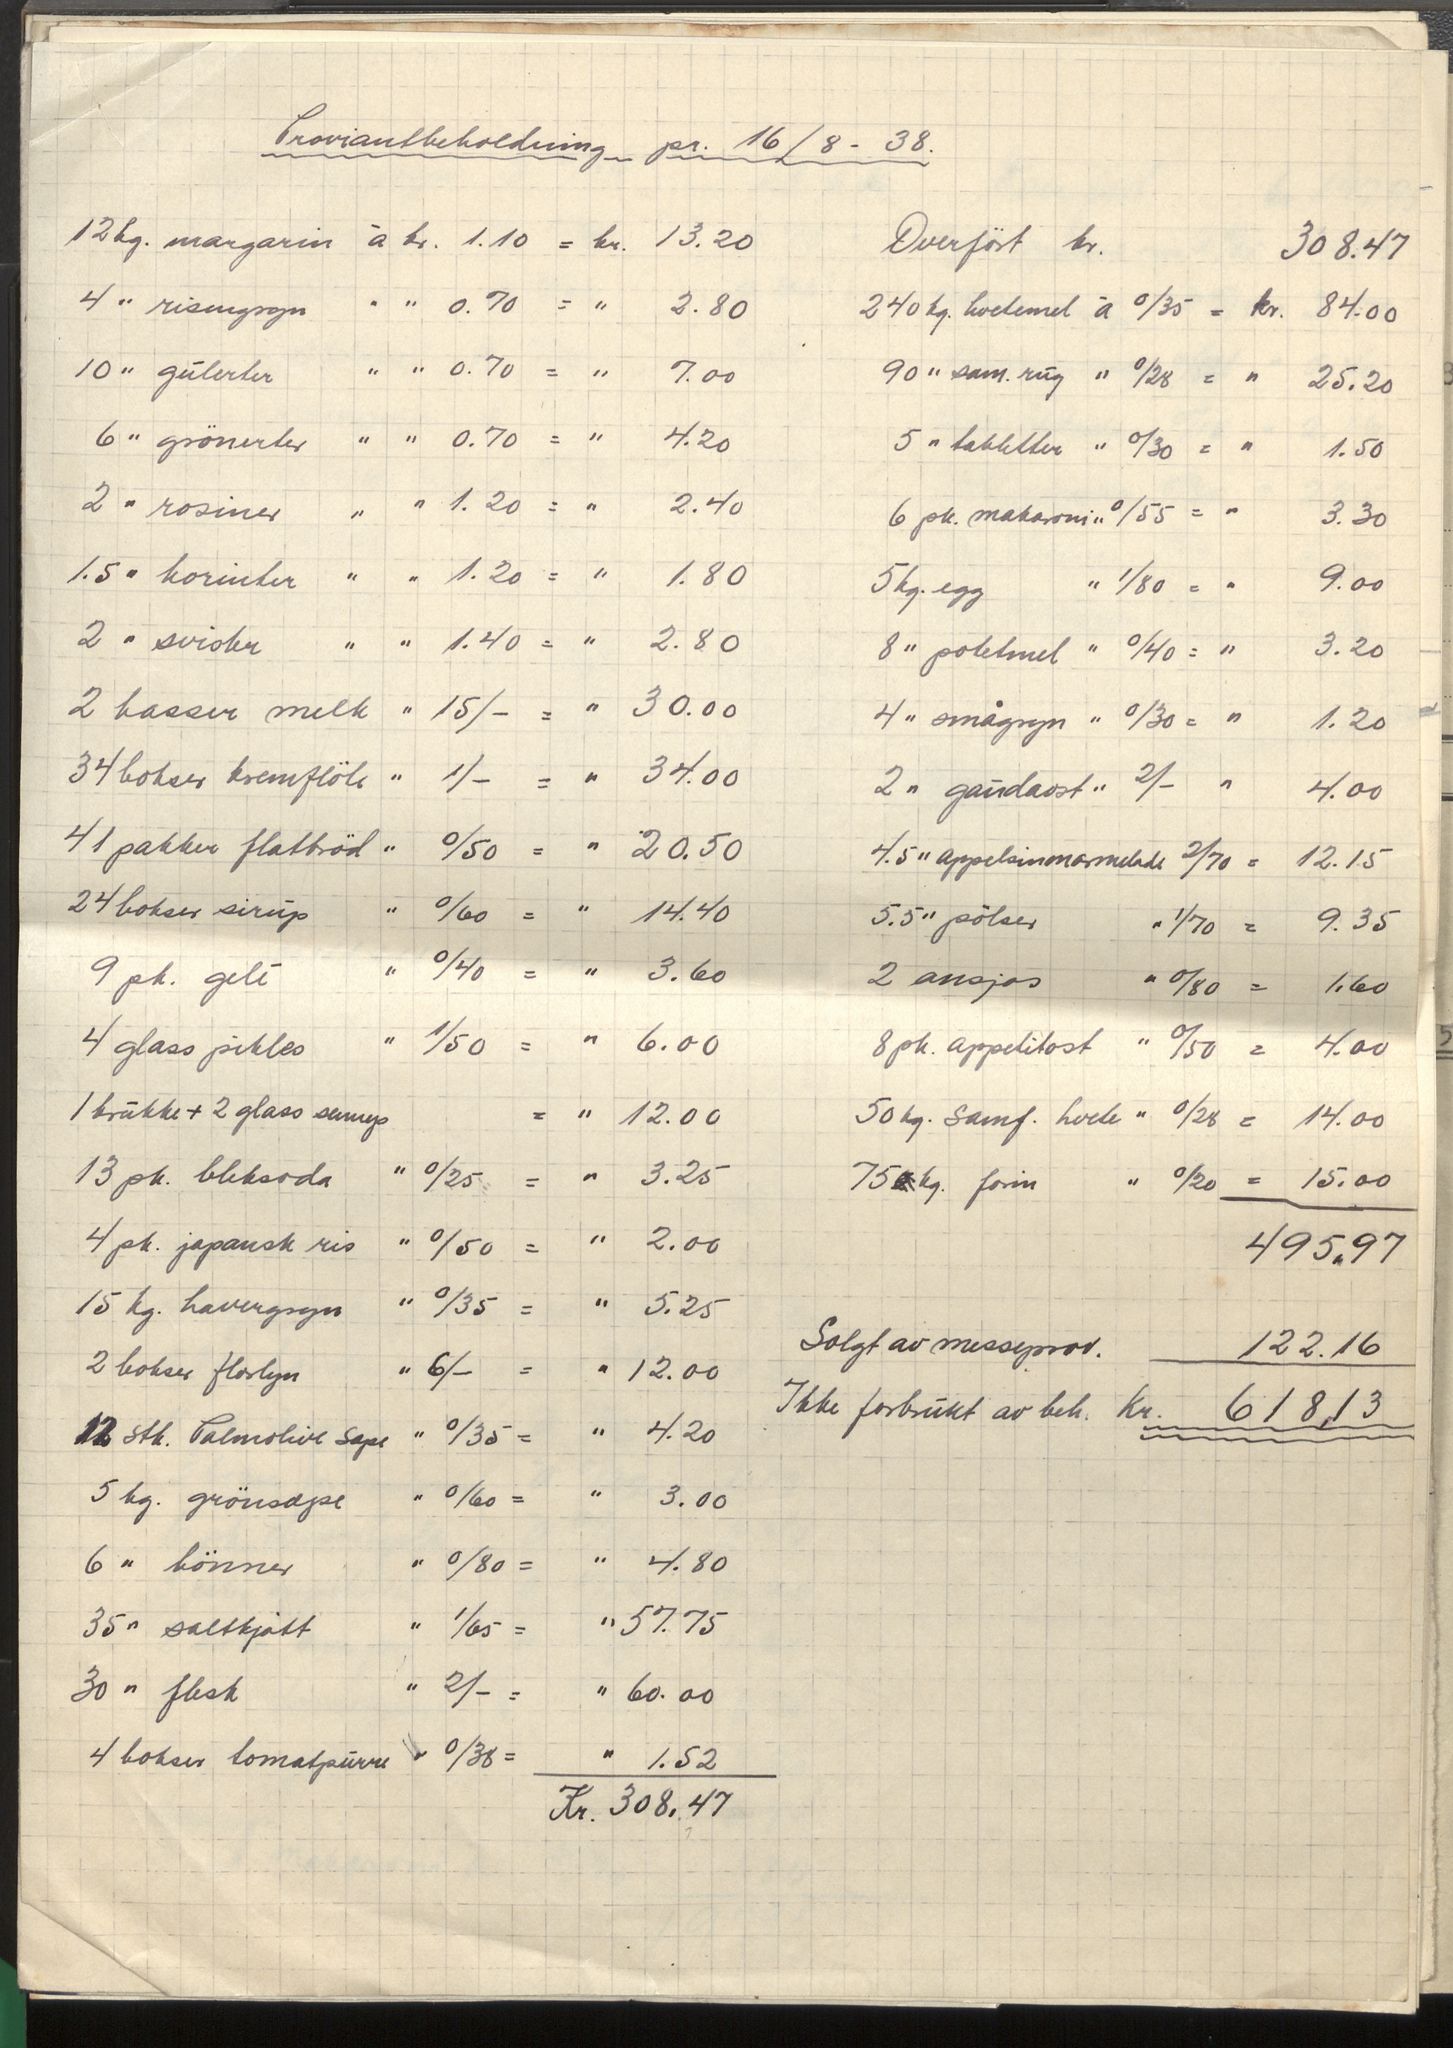 Proviantbeholdning pr. 16/8 - 38.
12 kg. margarin à kr. 1.10 = kr. 13.20
4 " risengryn " " 0.70 = " 2.80
10 " gülerter " " 0.70 = " 7.00
6 " grönerter " " 0.70 = " 4.20
2 " rosiner " " 1.20 = " 2.40
1.5 " korinter " " 1.20 = " 1.80
2 " svisker " " 1.40 = " 2.80
2 kasser melk " 15/- = " 30.00
34 bokser kremflöte " 1/- = " 34.00
41 pakker flatbröd " 0/50 = " 20.50
24 bokser sirup " 0/60 = " 14.40
9 pk. gelé " 0/40 = " 3.60
4 glass pikles " 1/50 = " 6.00
1 krükke + 2 glass sennep = " 12.00
13 pk. bleksoda " 0/25 = " 3.25
4 pk. japansk ris " 0/50 = " 2.00
15 kg. havregryn " 0/35 = " 5.25
2 bokser florlyn " 6/- = " 12.00
12 stk. Palmolive Sape " 0/35 = " 4.20
5 kg. grönsepe " 0/60 = " 3.00
6 " bönner " 0/80 = " 4.80
35 " saltkjött " 1/65 = " 57.75
30 " flesk " 2/- = " 60.00
4 bokser tomatpürre " 0/38 = " 1.52
Kr. 308.47
Overfört kr. 308.47
240 kg. hvetemel à 0/35 = kr. 84.00
90 " sam. rüg " 0/28 = " 25.20
5 " tabletter " 0/30 = " 1.50
6 pk. makaroni " 0/55 = " 3.30
5 kg. egg " 1/80 = " 9.00
8 " potetmel " 0/40 = " 3.20
4 " smågryn " 0/30 = " 1.20
2 " gaüdaost " 2/- " 4.00
4.5 " appelsinmarmelade 2/70 = 12.15
5.5 " pölser " 1/70 = 9.35
2 ansjos " 0/80 = 1.60
8 pk. appetitost " 0/50 = 4.00
50 kg. Samf. hvete " 0/28 = 14.00
75 kg. farin " 0/20 = 15.00
495.97
Solgt av messeprov. 122.16
Ikke forbrükt av beh. Kr. 618,13